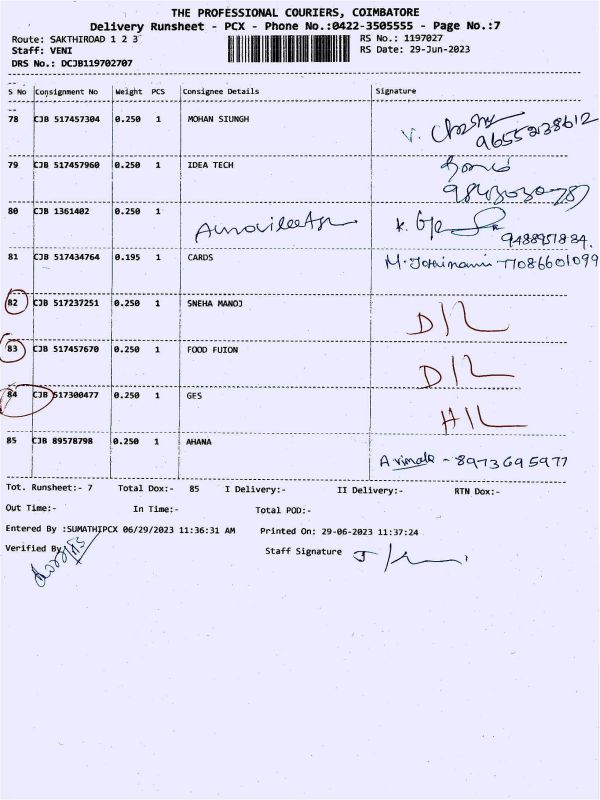 THE PROFESSIONAL COURIERS, COIMBATORE
Delivery Runsheet - PCX - Phone No.:0422-3505555 - Page No.:7
Route: SAKTHIROAD 1 2 3 RS No.: 1197027
Staff: VENI RS Date: 29-Jun-2023
DRS No.: DCJB119702707
S No Consignment No Weight PCS Consignee Details Signature
78 CJB 517457304 0.250 1 MOHAN SIUNGH 9655238612
79 CJB 517457960 0.250 1 IDEA TECH
80 CJB 1361402 0.250 1
81 CJB 517434764 0.195 1 CARDS 77086601099
82 CJB 517237251 0.250 1 SNEHA MANOJ D/L
83 CJB 517457670 0.250 1 FOOD FUION D/L
84 CJB 517300477 0.250 1 GES H/L
85 CJB 89578798 0.250 1 AHANA A vimala - 8973695977
Tot. Runsheet:- 7 Total Dox:- 85 I Delivery:- II Delivery:- RTN Dox:-
Out Time:- In Time:- Total POD:-
Entered By :SUMATHIPCX 06/29/2023 11:36:31 AM Printed On: 29-06-2023 11:37:24
Verified By Staff Signature